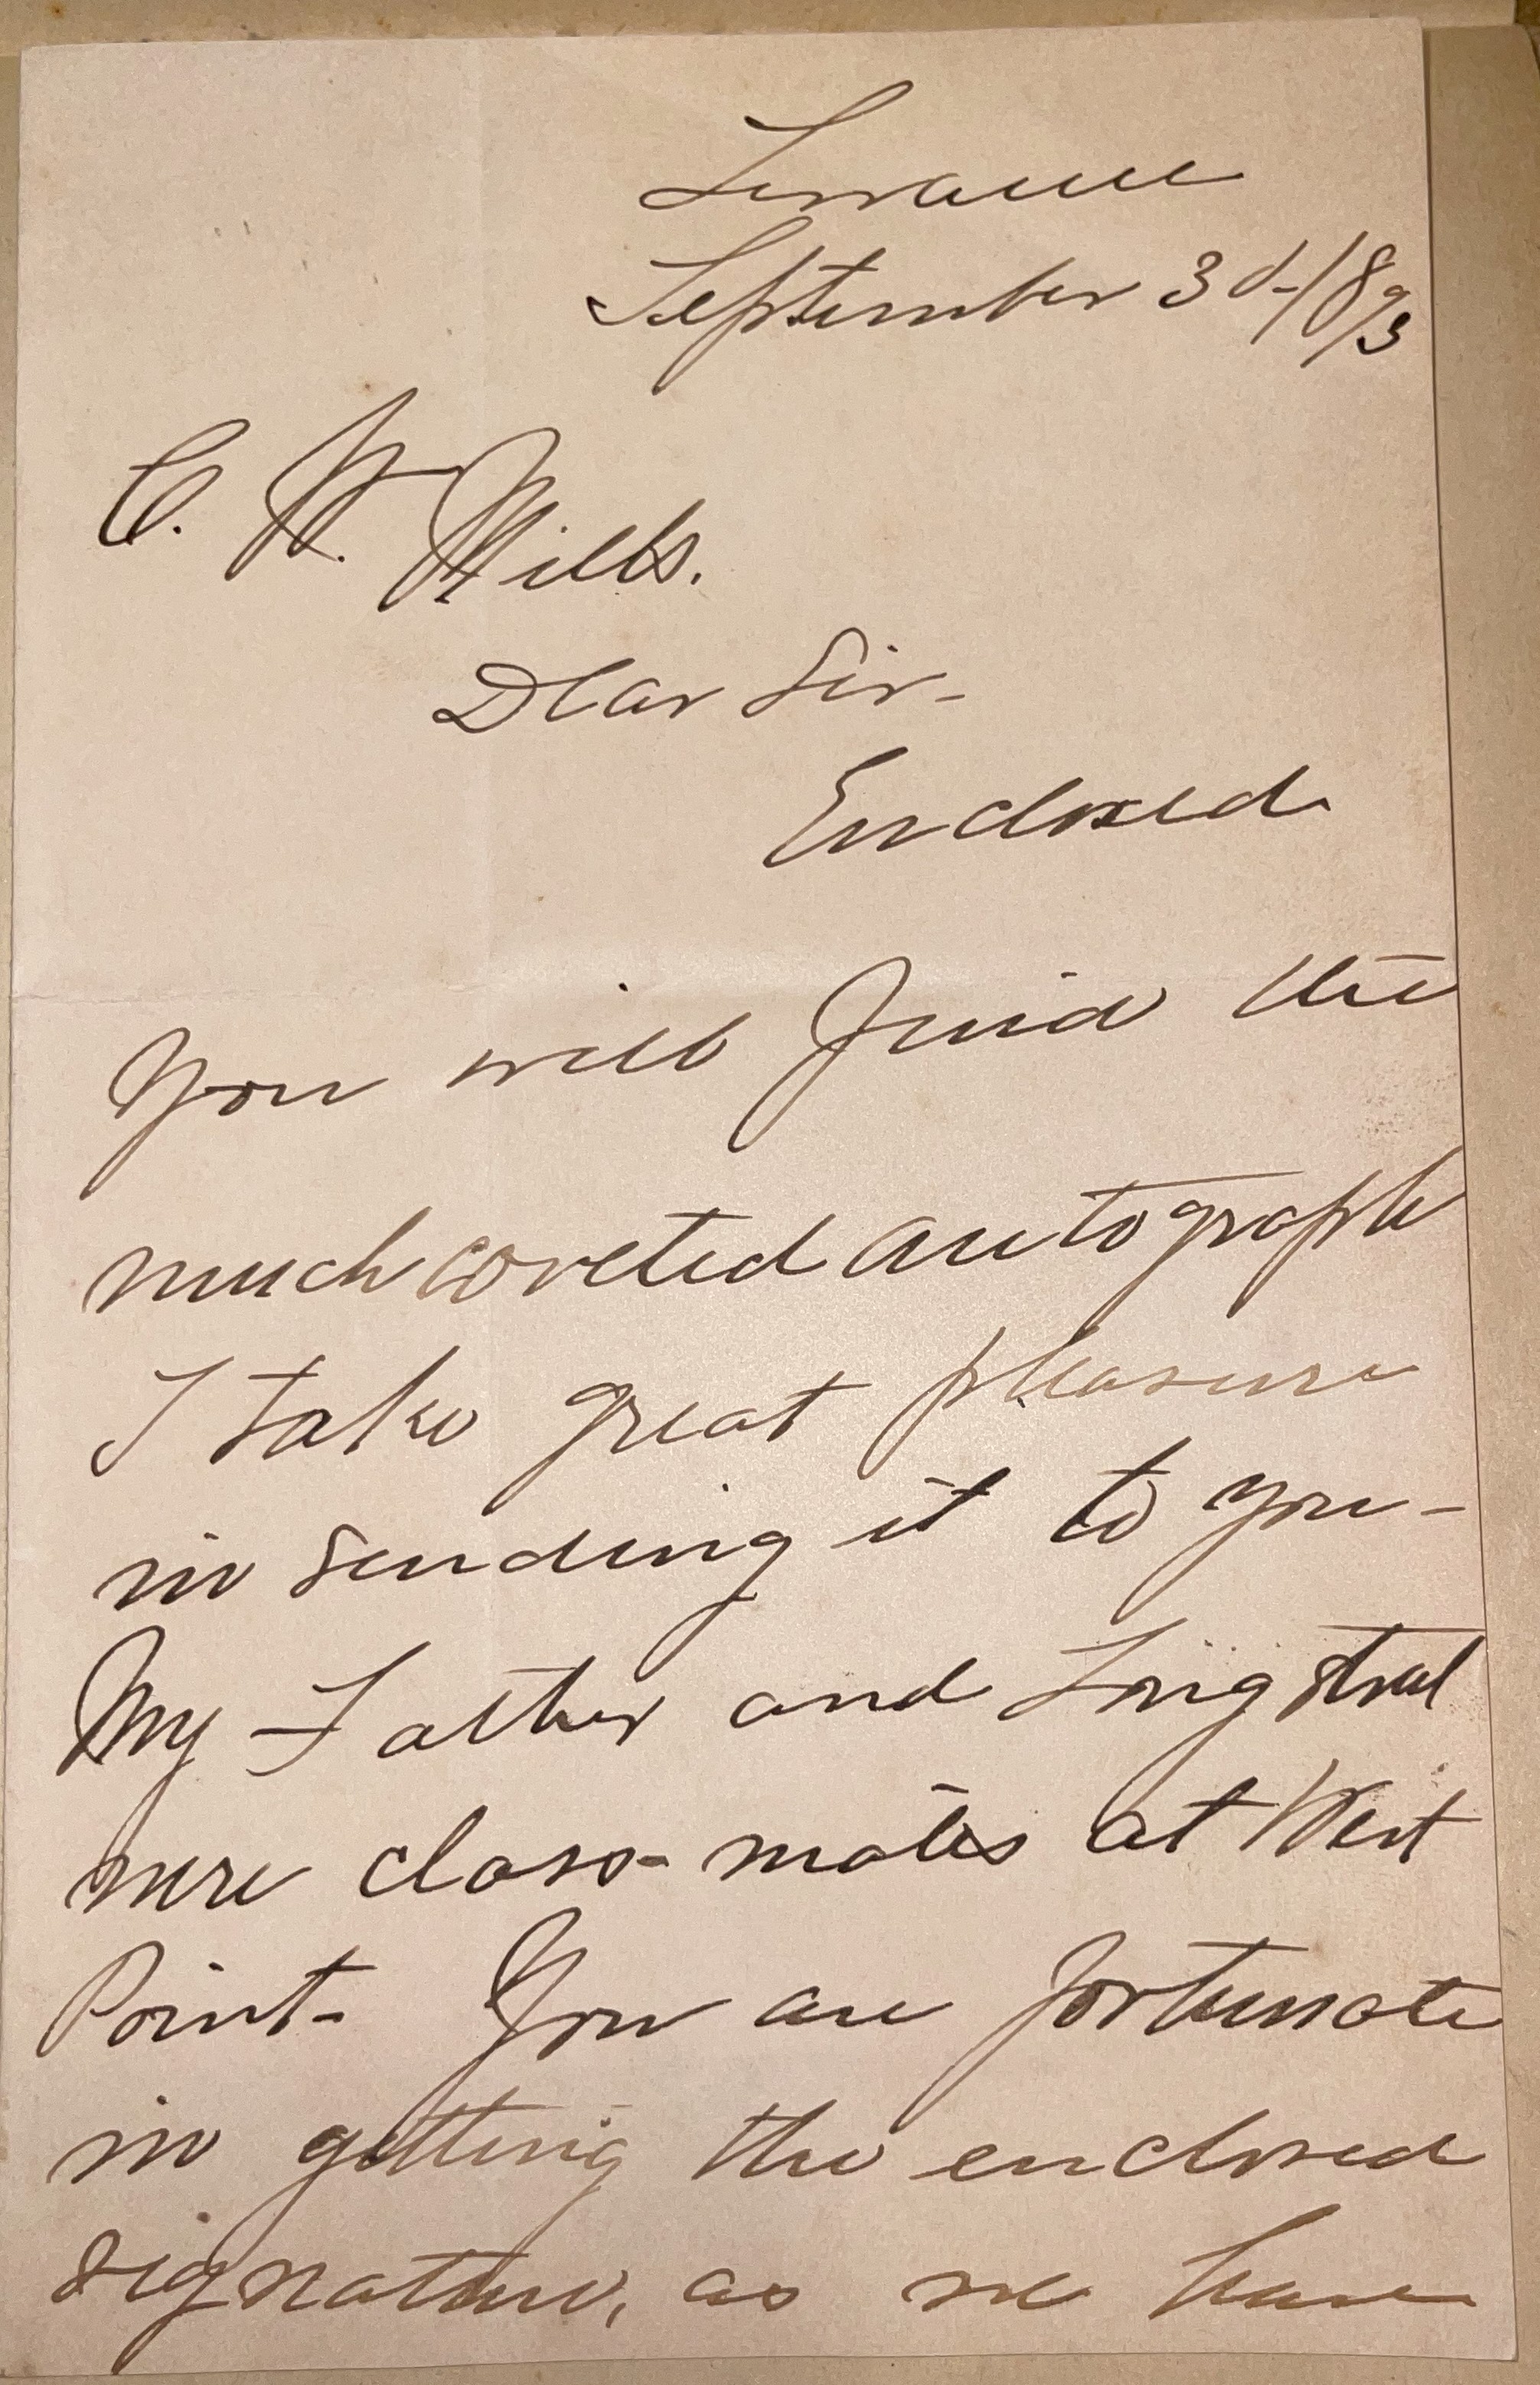 Sewanee
September 3d-/1893
C. W. Mills.
Dear Sir-
Enclosed
You will find the
much coveted autograph
I take great pleasure
in sending it to you-
My Father and Longstreet
were class-mates at West
Point- You are fortunate
in getting the enclosed
signature, as we have